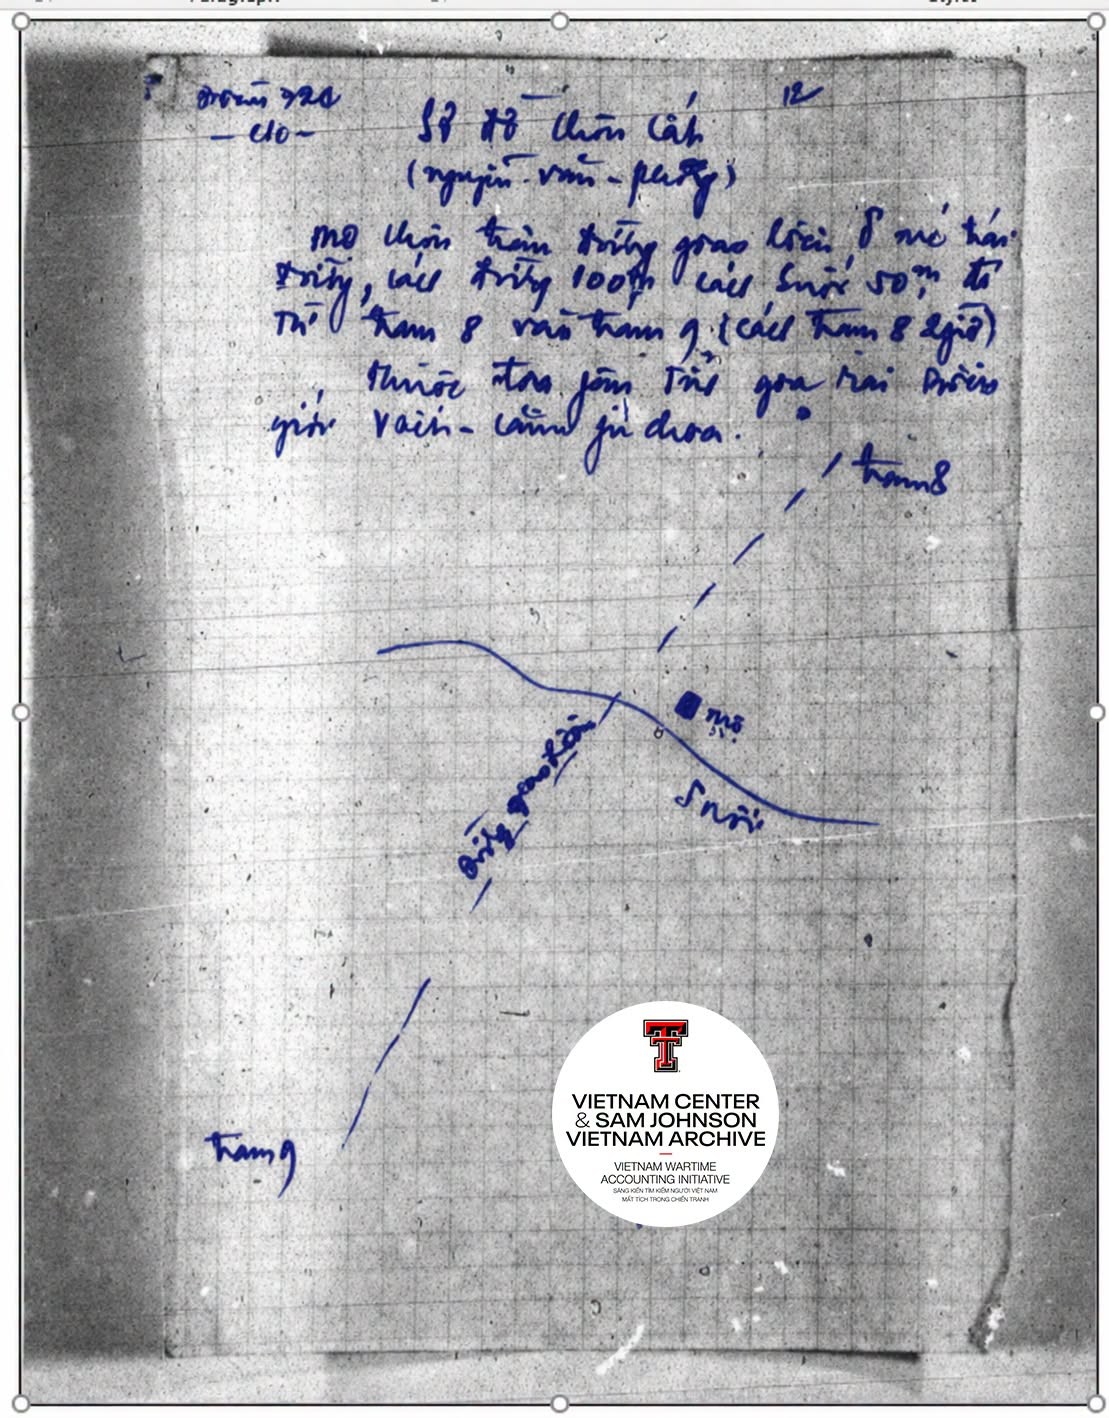 Đoàn 724
- C10 -
12
Sơ đồ chôn cất
(nguyễn - văn - phường)
mộ chôn trên đường giao liên, ở mé trái
đường, cách đường 100m cách suối 50m, đi
từ trạm 8 vào trạm 9 (cách trạm 8 2giờ)
thuộc
giới
trạm 8
mộ
Suối
Đường giao liên
trạm 9
VIETNAM CENTER
& SAM JOHNSON
VIETNAM ARCHIVE
VIETNAM WARTIME
ACCOUNTING INITIATIVE
SÁNG KIẾN TÌM KIẾM NGƯỜI VIỆT NAM
MẤT TÍCH TRONG CHIẾN TRANH